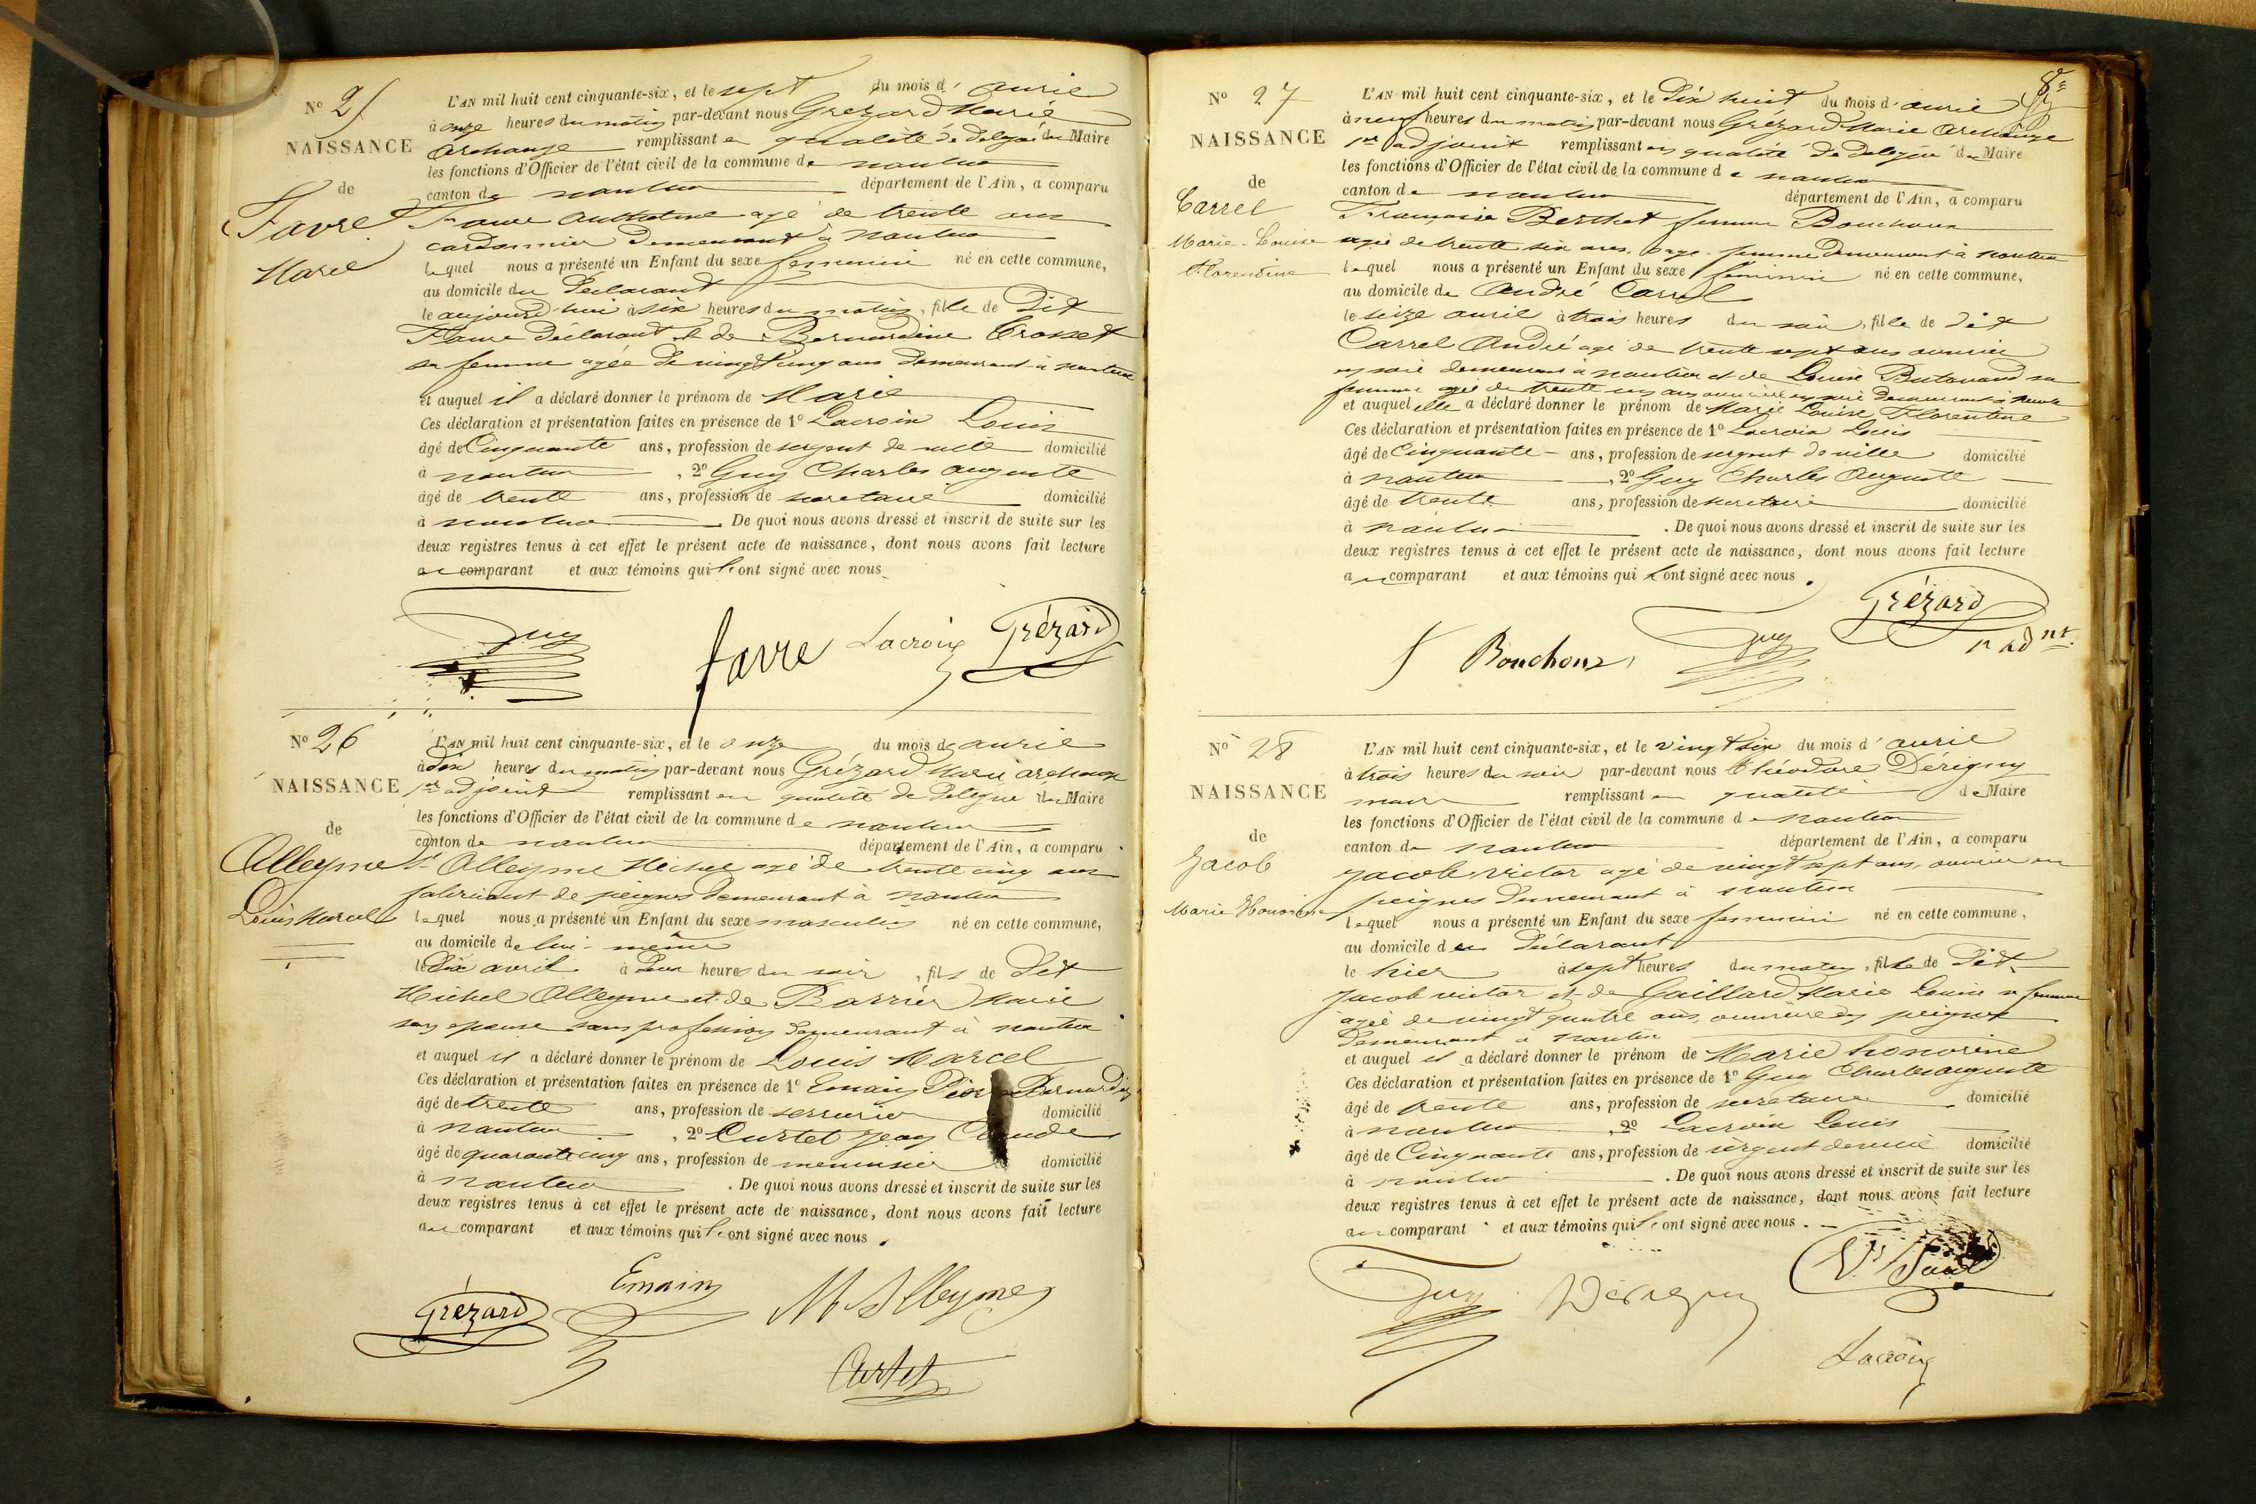 No 25
NAISSANCE
de
Favre
Marie
L'AN mil huit cent cinquante-six, et le sept du mois d'avril
à onze heures du matin par-devant nous Grézard Marie
Archange remplissant en qualité de délégué du Maire
les fonctions d'Officier de l'état civil de la commune de nantua
canton de nantua département de l'Ain, a comparu
Favre Anthelme agé de trente ans
cordonnier demeurant à nantua
lequel nous a présenté un Enfant du sexe feminin né en cette commune,
au domicile du declarant
le aujourd'hui à six heures du matin, fille de dit
Favre déclarant et de Bernardine Crosset
sa femme agée de vingt cinq ans demeurant à nantua
et auquel il a déclaré donner le prénom de Marie
Ces déclaration et présentation faites en présence de 1o Lacroix Louis
âgé de Cinquante ans, profession de sergent de ville domicilié
à nantua, 2o Guy Charles auguste
âgé de trente ans, profession de secretaire domicilié
à nantua. De quoi nous avons dressé et inscrit de suite sur les
deux registres tenus à cet effet le présent acte de naissance, dont nous avons fait lecture
au comparant et aux témoins qui ont signé avec nous
Guy favre Lacroix Grézard
No 26
NAISSANCE
de
Alleyme
Louis Marcel
L'AN mil huit cent cinquante-six, et le onze du mois de avril
à dix heures du matin par-devant nous Grézard Marie archange
1er adjoint remplissant en qualité de délégué du Maire
les fonctions d'Officier de l'état civil de la commune de nantua
canton de nantua département de l'Ain, a comparu
Alleyme Michel agé de trente cinq ans
fabricant de peignes demeurant à nantua
lequel nous a présenté un Enfant du sexe masculin né en cette commune,
au domicile de lui-même
le dix avril à heures du soir, fils de dit
Michel Alleyme et de Barrier Marie
son epouse sans profession demeurant à nantua
et auquel il a déclaré donner le prénom de Louis Marcel
Ces déclaration et présentation faites en présence de 1o Emain Bernardin
âgé de trente ans, profession de serrurier domicilié
à nantua, 2o Curtet Jean Claude
âgé de quarante cinq ans, profession de menuisier domicilié
à nantua. De quoi nous avons dressé et inscrit de suite sur les
deux registres tenus à cet effet le présent acte de naissance, dont nous avons fait lecture
au comparant et aux témoins qui ont signé avec nous.
Grézard Emain M Alleyme
Curtet
8e
No 27
NAISSANCE
de
Carrel
Marie-Louise
Florentine
L'AN mil huit cent cinquante-six, et le dix huit du mois d'avril
à neuf heures du matin par-devant nous Grézard Marie Archange
1er adjoint remplissant en qualité de délégué du Maire
les fonctions d'Officier de l'état civil de la commune de nantua
canton de nantua département de l'Ain, a comparu
Françoise Berthet femme Bouchoux
agée de trente six ans, sage-femme demeurant à nantua
lequel nous a présenté un Enfant du sexe féminin né en cette commune,
au domicile de André Carrel
le seize avril à trois heures du soir, fille de dit
Carrel André agé de trente sept ans ouvrier
en soie demeurant à nantua et de Louise Butavand sa
femme agée de trente ans ouvrière en soie demeurant à nantua
et auquel elle a déclaré donner le prénom de Marie Louise Florentine
Ces déclaration et présentation faites en présence de 1o Lacroix Louis
âgé de Cinquante ans, profession de sergent de ville domicilié
à nantua, 2o Guy Charles Auguste
âgé de trente ans, profession de secretaire domicilié
à nantua. De quoi nous avons dressé et inscrit de suite sur les
deux registres tenus à cet effet le présent acte de naissance, dont nous avons fait lecture
au comparant et aux témoins qui ont signé avec nous.
f Bouchoux Guy Grézard
1r adnt.
No 28
NAISSANCE
de
Jacob
Marie Honorine
L'AN mil huit cent cinquante-six, et le vingt six du mois d'avril
à trois heures du soir par-devant nous Théodore Dérigny
maire remplissant en qualité de Maire
les fonctions d'Officier de l'état civil de la commune de nantua
canton de nantua département de l'Ain, a comparu
Jacob victor agé de vingt sept ans, ouvrier en
peignes demeurant à nantua
lequel nous a présenté un Enfant du sexe feminin né en cette commune,
au domicile du déclarant
le hier à sept heures du matin, fille de dit
Jacob victor et de Gaillard Marie Louise sa femme
agée de vingt quatre ans, ouvriere en peignes
demeurant à nantua
et auquel il a déclaré donner le prénom de Marie honorine
Ces déclaration et présentation faites en présence de 1o Guy Charles auguste
âgé de trente ans, profession de secretaire domicilié
à nantua, 2o Lacroix Louis
âgé de Cinquante ans, profession de sergent de ville domicilié
à nantua. De quoi nous avons dressé et inscrit de suite sur les
deux registres tenus à cet effet le présent acte de naissance, dont nous avons fait lecture
au comparant et aux témoins qui ont signé avec nous.
Guy Dérigny
Lacroix